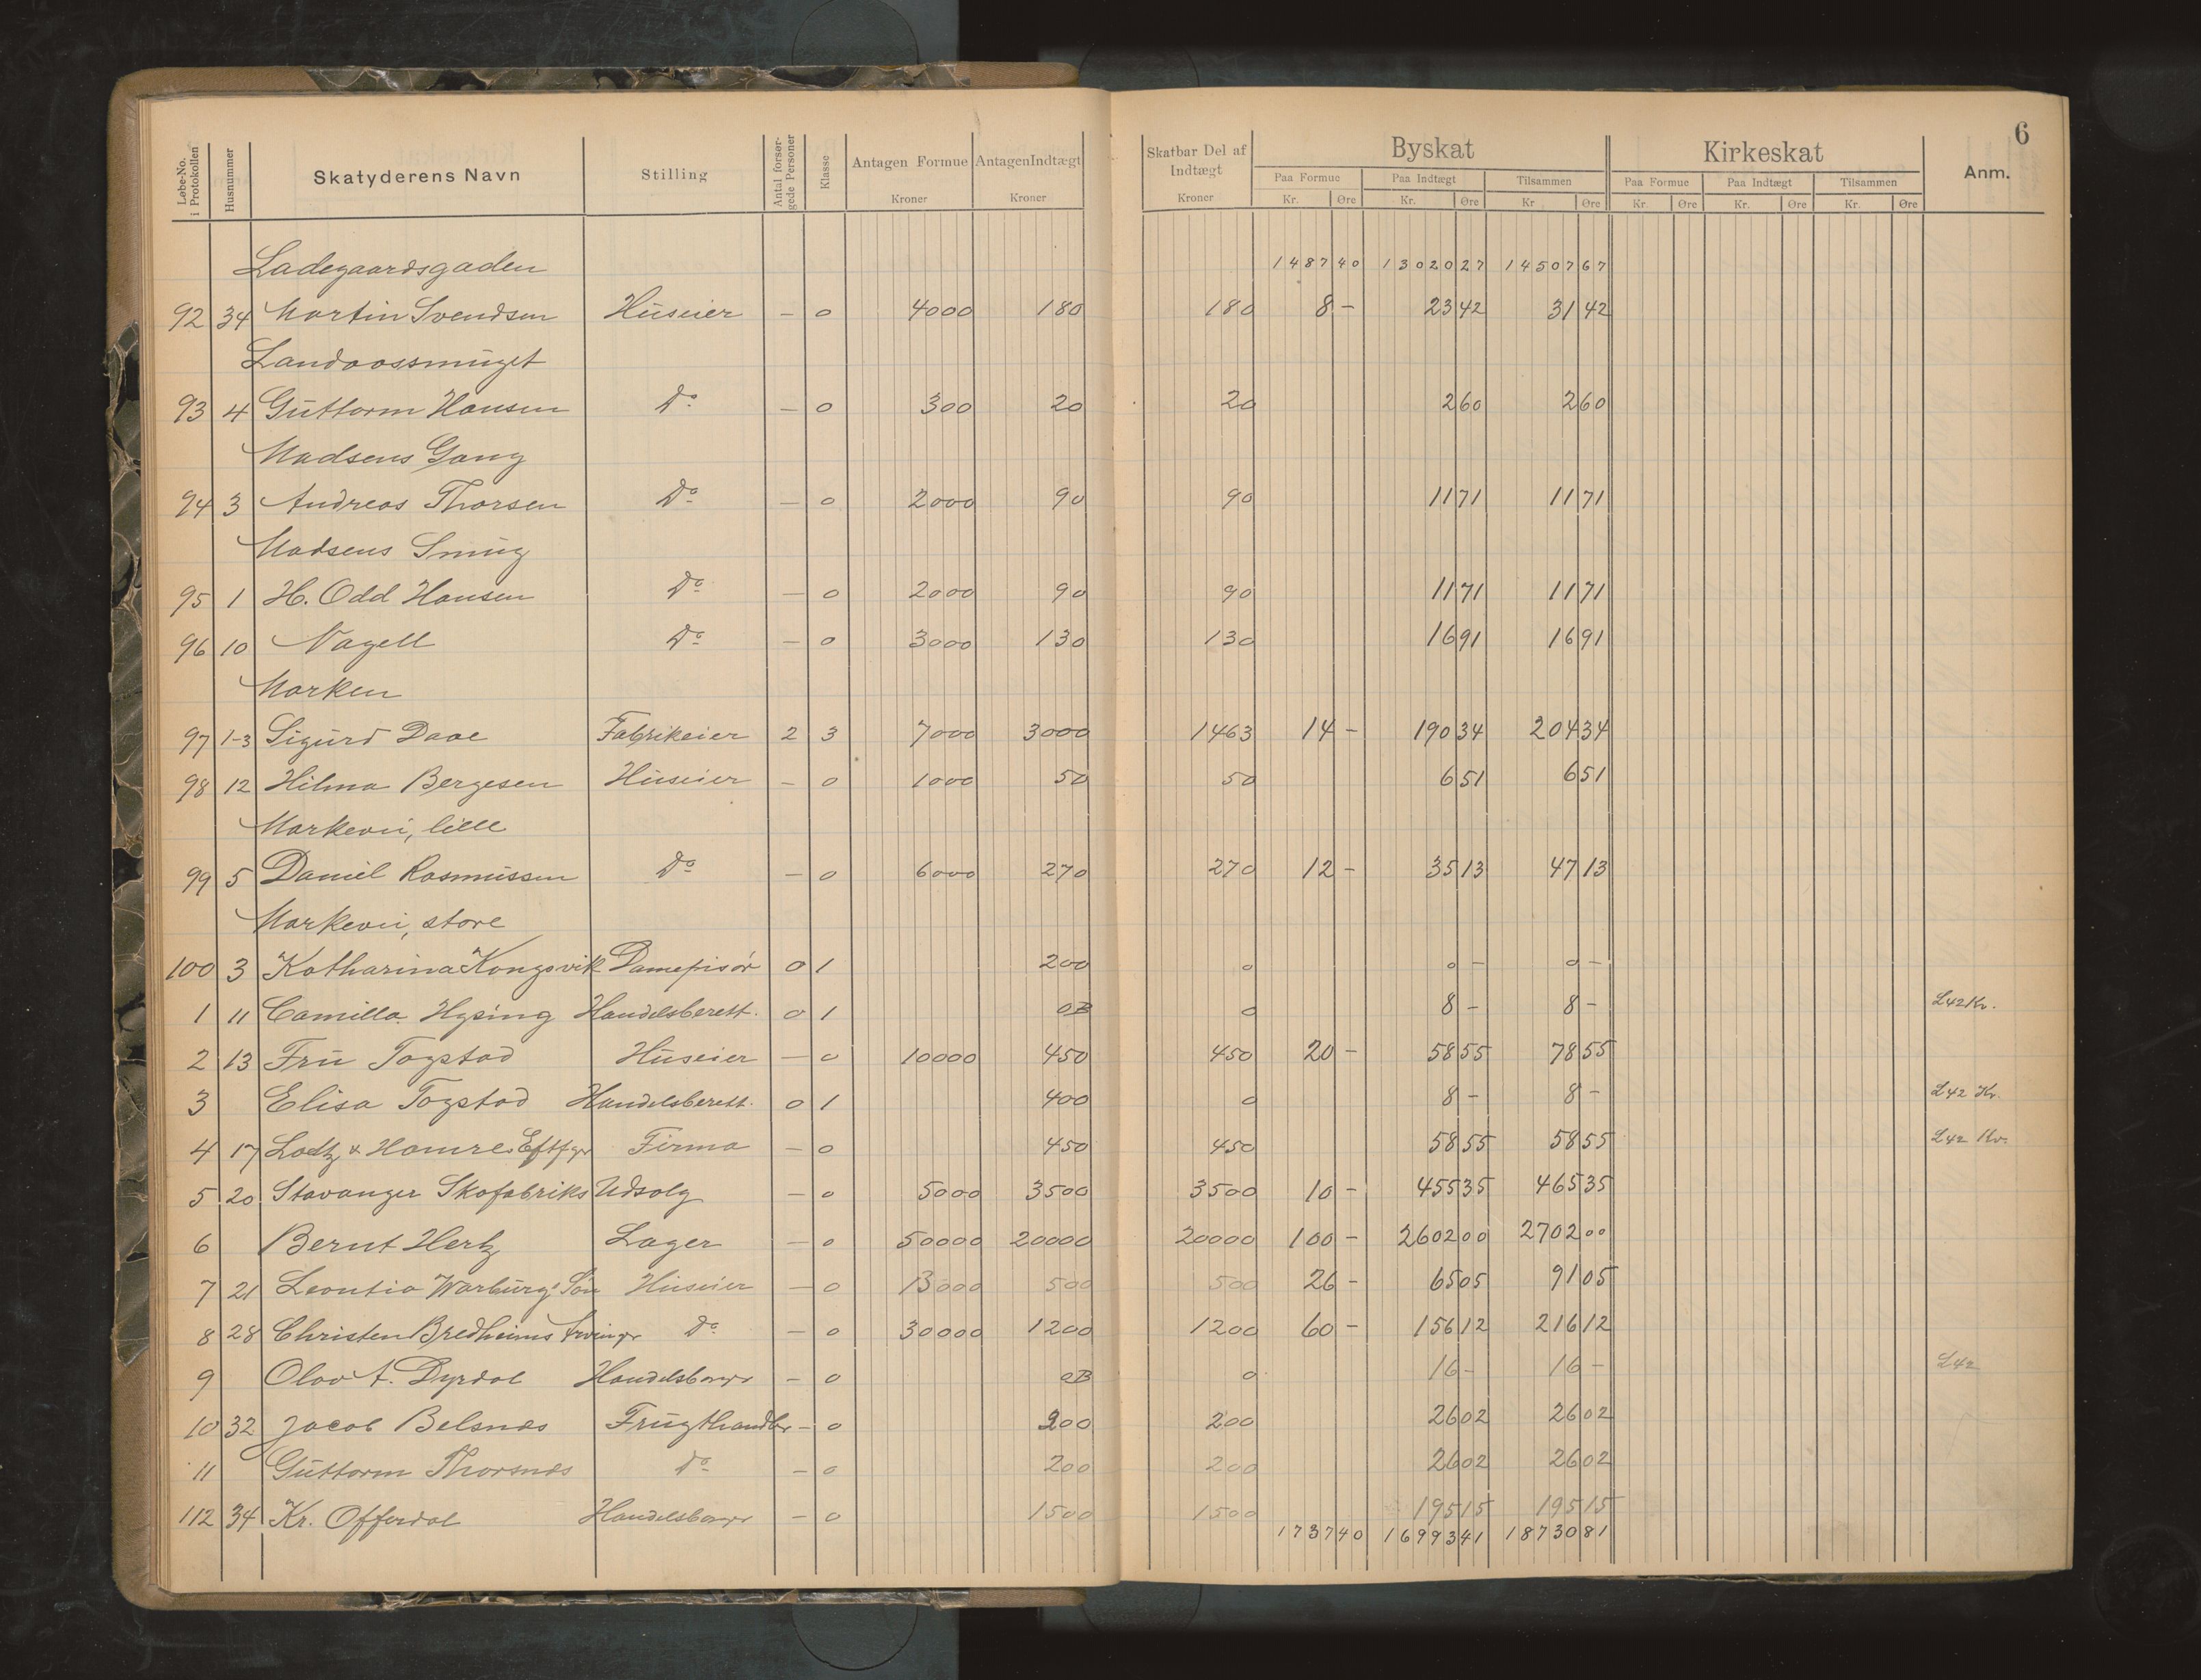 6
Løbe-No. i Protokollen | Husnummer | Skatyderens Navn | Stilling | Antal forsørgede Personer | Klasse | Antagen Formue Kroner | Antagen Indtægt Kroner | Skatbar Del af Indtægt Kroner | Byskat | Kirkeskat | Anm.
Paa Formue | Paa Indtægt | Tilsammen | Paa Formue | Paa Indtægt | Tilsammen
Kr. Øre | Kr. Øre | Kr Øre | Kr. Øre | Kr. Øre | Kr. Øre
Ladegaardsgaden 1487 40 13020 27 14507 67
92 34 Martin Svendsen Huseier - 0 4000 180 180 8 - 23 42 31 42
Landaassmuget
93 4 Guttorm Hansen Do - 0 300 20 20 2 60 2 60
Madsens Gang
94 3 Andreas Thorsen Do - 0 2000 90 90 11 71 11 71
Madsens Smug
95 1 H. Odd Hansen Do - 0 2000 90 90 11 71 11 71
96 10 Nagell Do - 0 3000 130 130 16 91 16 91
Marken
97 1-3 Sigurd Daae Fabrikeier 2 3 7000 3000 1463 14 - 190 34 204 34
98 12 Hilma Bergesen Huseier - 0 1000 50 50 6 51 6 51
Markevei, lille
99 5 Daniel Rasmussen Do - 0 6000 270 270 12 - 35 13 47 13
Markevei, store
100 3 Katharina Kongsvik Damefrisør 0 1 200 0 0 - 0 -
1 11 Camilla Hysing Handelsberett. 0 1 0B 0 8 - 8 - L42 Kr.
2 13 Fru Togstad Huseier - 0 10000 450 450 20 - 58 55 78 55
3 Elisa Togstad Handelsberett. 0 1 400 0 8 - 8 - L42 Kr.
4 17 Lodtz & Hamres Eftfgr Firma - 0 450 450 58 55 58 55 L42 Kr.
5 20 Stavanger Skofabriks Udsalg - 0 5000 3500 3500 10 - 455 35 465 35
6 Bernt Hertz Lager - 0 50000 20000 20000 100 - 2602 00 2702 00
7 21 Leontia Warburg's Søn Huseier - 0 13000 500 500 26 - 65 05 91 05
8 28 Christen Bredheims Arvinger Do - 0 30000 1200 1200 60 - 156 12 216 12
9 Olav A. Dyrdal Handelsborger - 0 0B 0 16 - 16 - L42
10 32 Jacob Belsnæs Frugthandler - 0 200 200 26 02 26 02
11 Guttorm Thorsnæs Do - 0 200 200 26 02 26 02
112 34 Kr. Offerdal Handelsborger - 0 1500 1500 195 15 195 15
1737 40 16993 41 18730 81